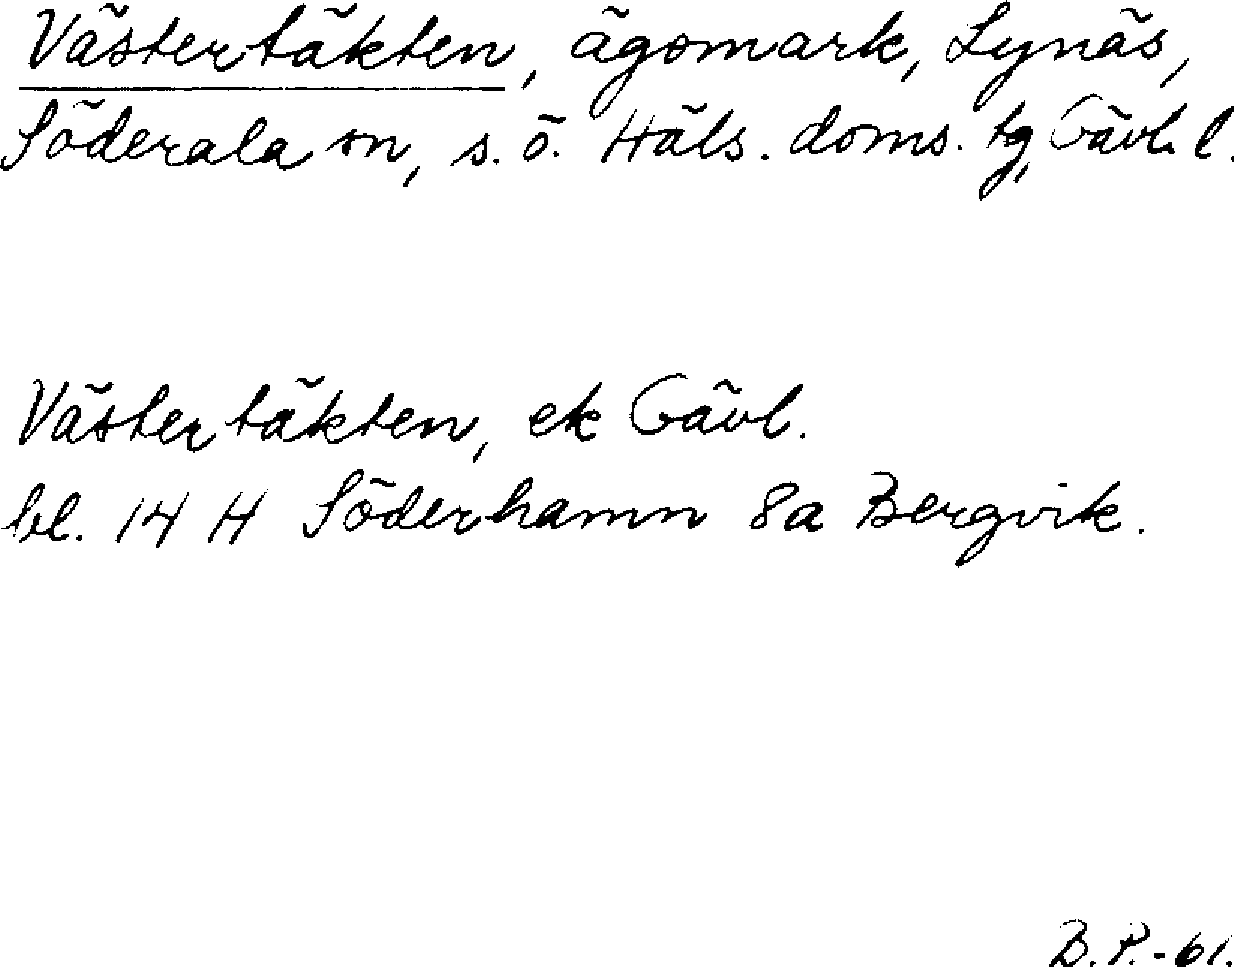 Västertäkten, ägomark, Lynäs,
Söderala sn, s. ö. Häls. doms. tg, Gävl. l.
Västertäkten, ek Gävl.
bl. 14 H Söderhamn 8a Bergvik.
B. P. - 61.